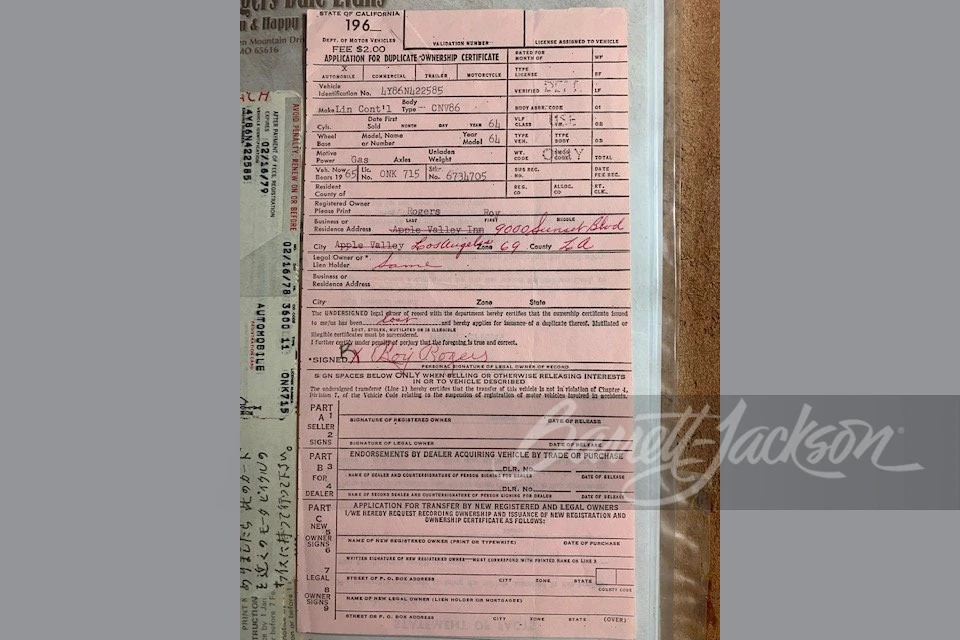 STATE OF CALIFORNIA
196_
DEPT. OF MOTOR VEHICLES
VALIDATION NUMBER
LICENSE ASSIGNED TO VEHICLE
FEE $2.00
APPLICATION FOR DUPLICATE OWNERSHIP CERTIFICATE
RATED FOR MONTH OF
WF
X
AUTOMOBILE COMMERCIAL TRAILER MOTORCYCLE
TYPE LICENSE
RF
Vehicle Identification No. 4Y86N422585
VERIFIED
LF
Make Lin Cont'l Body Type - CNV86
BODY ABBR. CODE
01
Cyls. Date First Sold MONTH DAY YEAR 64
VLF CLASS
Wheel Base Model, Name or Number Year Model 64
TYPE VEH. TYPE BODY
Motive Power Gas Axles Unladen Weight
WT. CODE
TOTAL
Veh. Now Bears 1965 Lic. No. ONK 715 Stkr No. 6734705
SUB REC. NO.
DATE FEE REC.
Resident County of
REG. CO ALLOC. CO RT. CLK.
Registered Owner Please Print Rogers Roy
LAST FIRST MIDDLE
Business or Residence Address Apple Valley Inn 9000 Sunset Blvd
City Apple Valley Los Angeles Zone 69 County LA
Legal Owner or * Lien Holder Same
Business or Residence Address
City Zone State
The UNDERSIGNED legal owner of record with the department hereby certifies that the ownership certificate issued
to me/us has been lost and hereby applies for issuance of a duplicate thereof. Mutilated or
LOST, STOLEN, MUTILATED OR IS ILLEGIBLE
illegible certificates must be surrendered.
I further certify under penalty of perjury that the foregoing is true and correct.
*SIGNED X Roy Rogers
PERSONAL SIGNATURE OF LEGAL OWNER OF RECORD
SIGN SPACES BELOW ONLY WHEN SELLING OR OTHERWISE RELEASING INTERESTS
IN OR TO VEHICLE DESCRIBED
The undersigned transferor (Line 1) hereby certifies that the transfer of this vehicle is not in violation of Chapter 4,
Division 7, of the Vehicle Code relating to the suspension of registration of motor vehicles involved in accidents.
PART A SELLER SIGNS
1 SIGNATURE OF REGISTERED OWNER DATE OF RELEASE
2 SIGNATURE OF LEGAL OWNER DATE OF RELEASE
PART B FOR DEALER
ENDORSEMENTS BY DEALER ACQUIRING VEHICLE BY TRADE OR PURCHASE
3 DLR. No.
NAME OF DEALER AND COUNTERSIGNATURE OF PERSON SIGNING FOR DEALER DATE OF RELEASE
4 DLR. No.
NAME OF SECOND DEALER AND COUNTERSIGNATURE OF PERSON SIGNING FOR DEALER DATE OF RELEASE
PART C NEW OWNER SIGNS
APPLICATION FOR TRANSFER BY NEW REGISTERED AND LEGAL OWNERS
I/WE HEREBY REQUEST RECORDING OWNERSHIP AND ISSUANCE OF NEW REGISTRATION AND
OWNERSHIP CERTIFICATE AS FOLLOWS:
5 NAME OF NEW REGISTERED OWNER (PRINT OR TYPEWRITE) DATE OF PURCHASE
6 WRITTEN SIGNATURE OF NEW REGISTERED OWNER MUST CORRESPOND WITH PRINTED NAME ON LINE 5
7 STREET OR P. O. BOX ADDRESS CITY ZONE STATE
COUNTY CODE
LEGAL OWNER SIGNS
8 NAME OF NEW LEGAL OWNER (LIEN HOLDER OR MORTGAGEE)
9 STREET OR P. O. BOX ADDRESS CITY ZONE STATE (OVER)
Barrett-Jackson
Dale Evans
& Happy
Mountain
MO 65616
AVOID PENALTY, RENEW ON OR BEFORE
AFTER PAYMENT OF FEES, REGISTRATION EXPIRES
02/16/79
VEHICLE IDENTIFICATION NUMBER
4Y86N422585
02/16/78 3600 11 ONK715
AUTOMOBILE